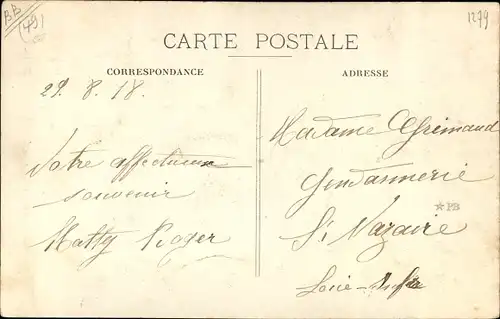 BB
(49)
1279
CARTE POSTALE
CORRESPONDANCE
ADRESSE
29. 8. 18.
Votre affectueux
souvenir
Roger
Madame Grimaud
Gendarmerie
St Nazaire
☆PB
Loire-Infre